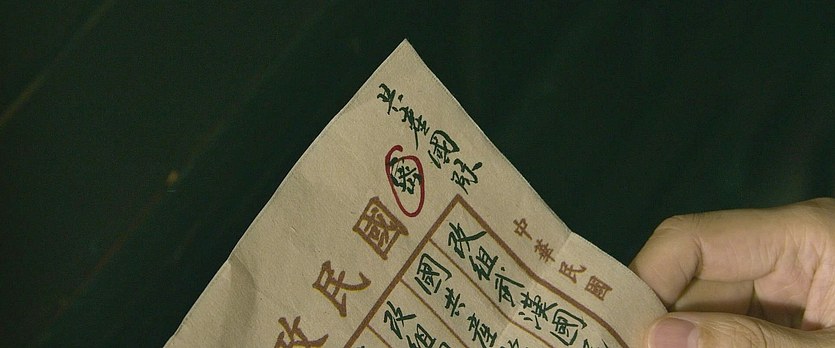 共產國
國民政
中華民國
改組武漢國
國共產
改組